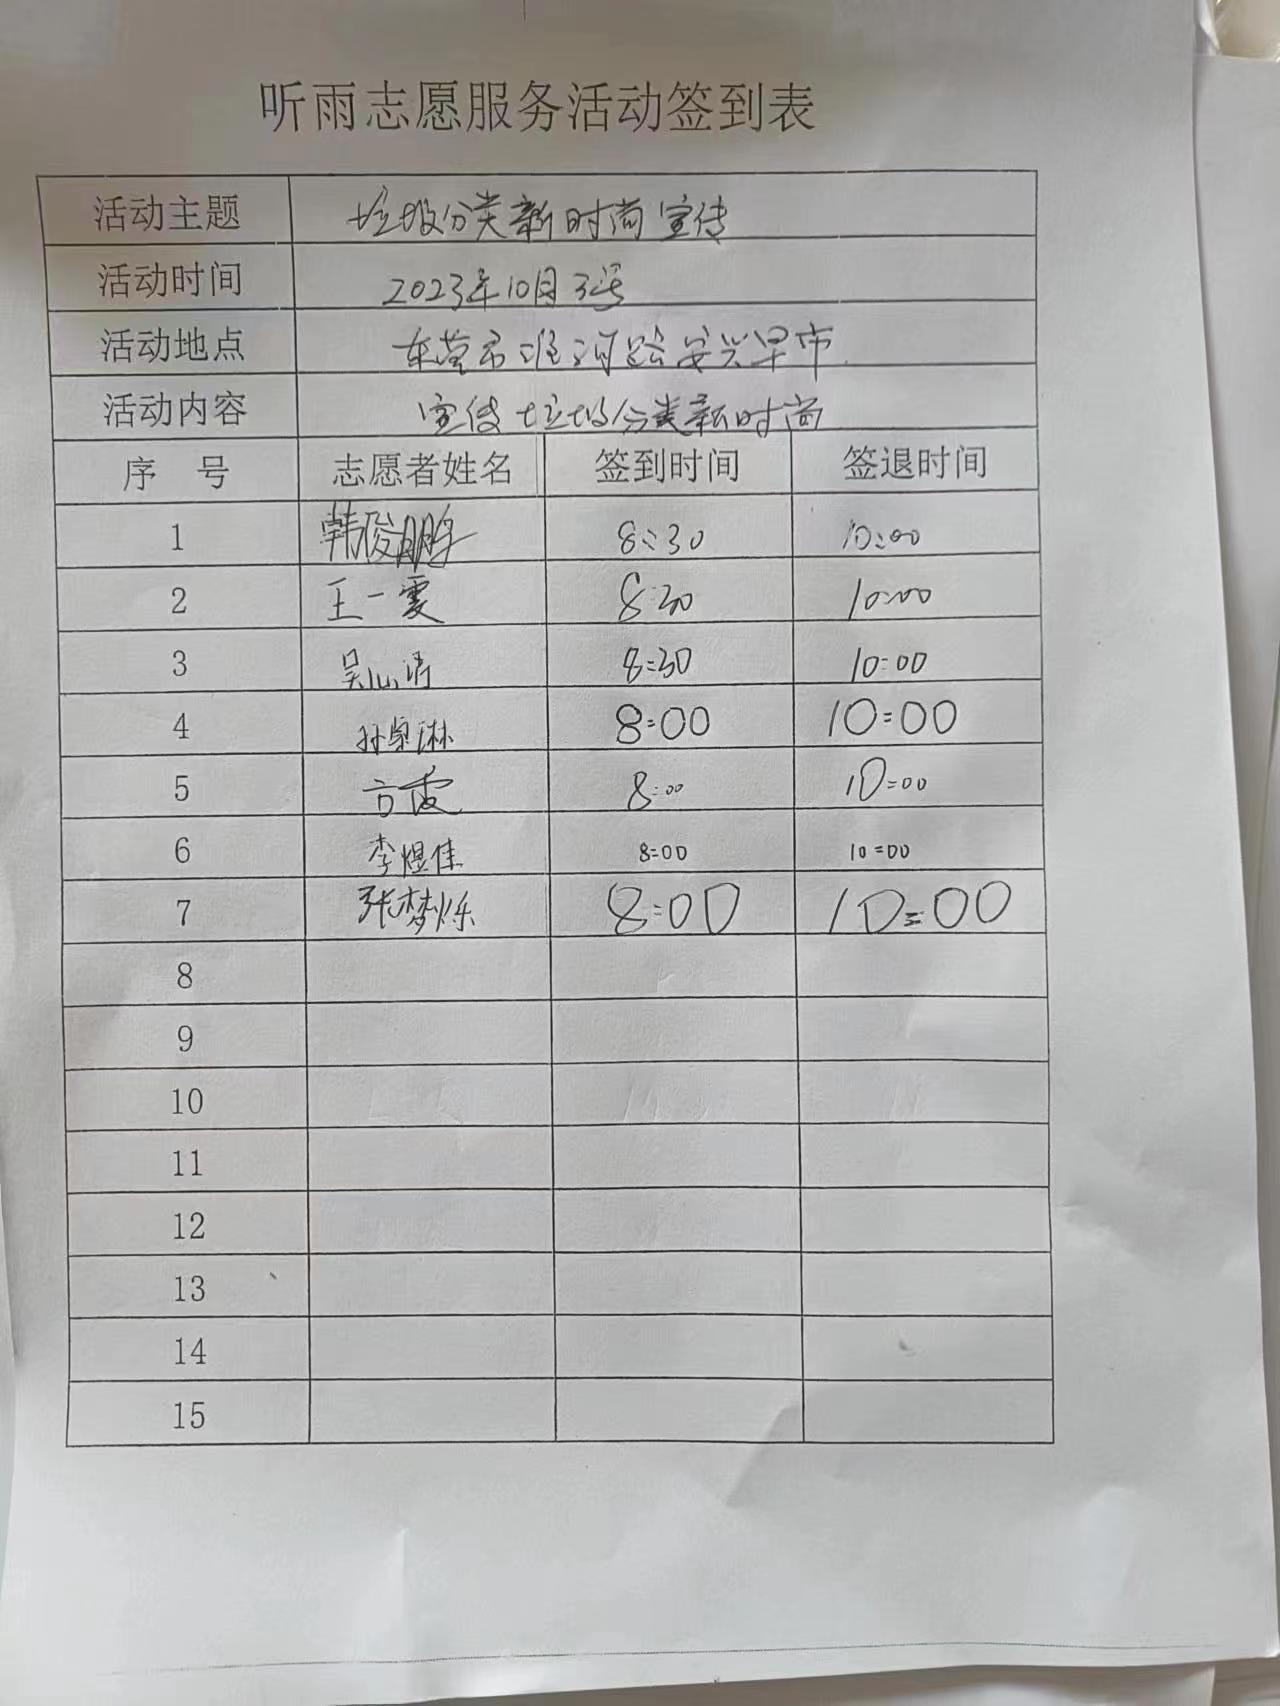 听雨志愿服务活动签到表
活动主题 垃圾分类新时尚宣传
活动时间 2023年10月3号
活动地点 东营市淮河路安兴早市
活动内容 宣传垃圾分类新时尚
序 号 志愿者姓名 签到时间 签退时间
1 韩俊鹏 8:30 10:00
2 王一雯 8:30 10:00
3 吴心 8:30 10:00
4 孙卓琳 8:00 10:00
5 方霞 8:00 10:00
6 李煜佳 8:00 10:00
7 张梦烁 8:00 10:00
8
9
10
11
12
13
14
15